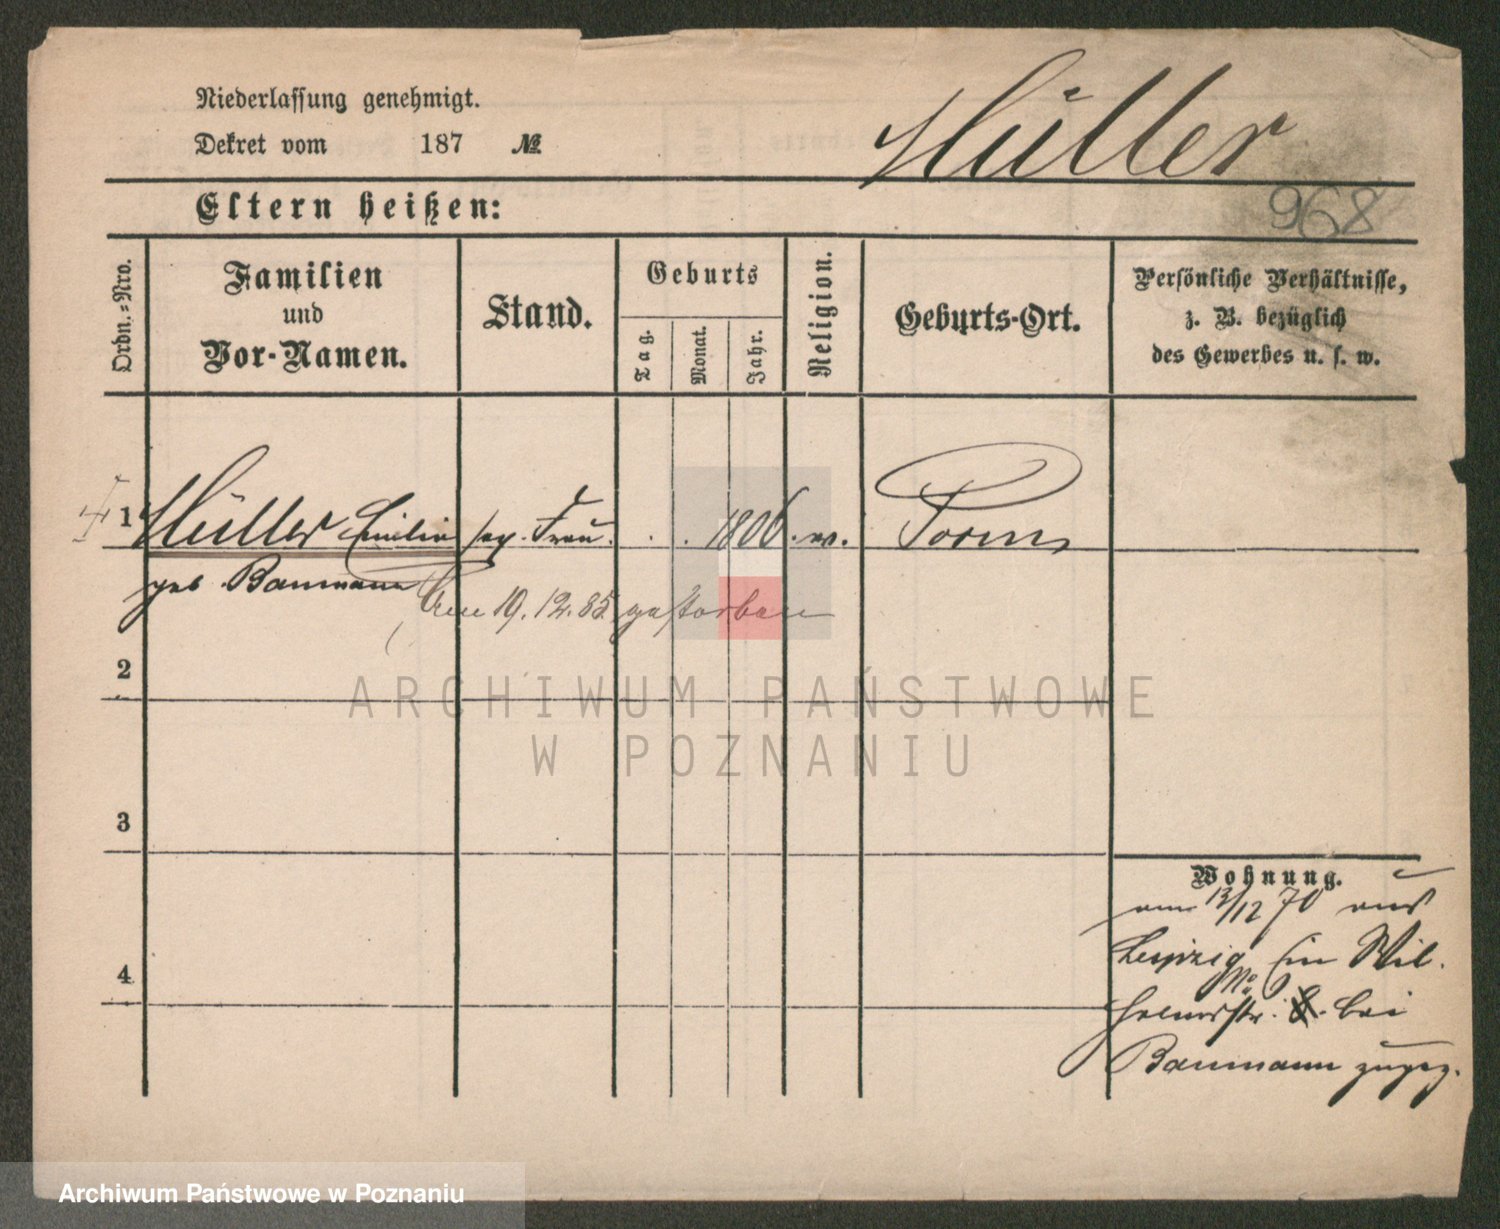 Niederlassung genehmigt.
Dekret vom 187 №
Müller
968
Eltern heißen:
Ordn.-Nro.
Familien
und
Vor-Namen.
Stand.
Geburts
Tag.
Monat.
Jahr.
Religion.
Geburts-Ort.
Persönliche Verhältnisse,
z. B. bezüglich
des Gewerbes u. s. w.
1 Müller Emilie sep. Frau. . . 1806. ev. Posen
geb. Baumann
Am 19.12.85 gestorben
2
ARCHIWUM PAŃSTWOWE
W POZNANIU
3
Wohnung.
am 13/12 70 aus
Leipzig in Wil-
No 6
helmsstr. 8. bei
Baumann zugez.
4
Archiwum Państwowe w Poznaniu